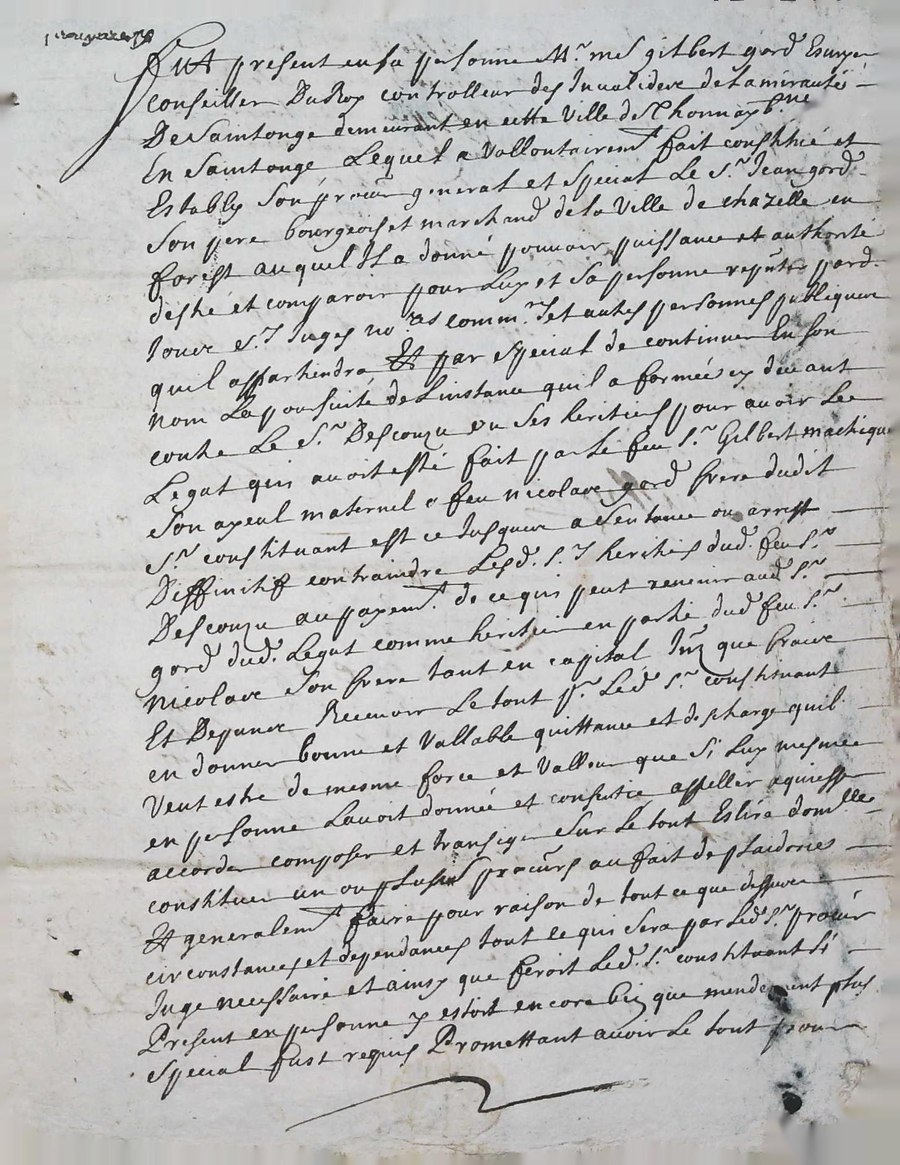 Fut present en sa personne Mr. me gilbert gord Escuyer
Conseiller Du Roy controlleur des Invalides de Lamirauté
De Saintonge demeurant en cette Ville de
En Saintonge Lequel a Vallontairemt fait constitué et
Estably son procur general et special Le Sr. Jean gord
son pere bourgeois et marchand de la Ville de chazelle en
forest auquel Il a donné pouvoir puissance et authorité
destre et comparoir pour Luy et sa personne par d.
Juges no.res comm.res et autres personnes publiques
quil appartiendra Et par special de continuer En son
nom La poursuite de Linstance quil a formée cy devant
contre Le Sr. Descouzu ou ses heritiers pour avoir Le
Legat qui avoit esté fait par le feu Sr. Gilbert
son ayeul maternel a feu nicolave gord frere dudit
Sr. constituant est ce Jusques a sentence ou arrest
Deffinitif contraindre Lesd. Srs heritiers dud. feu Sr.
Descouzu au payemt. de ce qui peut revenir aud. Sr.
gord dud. Legat comme heritier en partie dud feu Sr.
nicolave son frere tant en capital que fraix
Et Depance Recevoir Le tout pr. Led Sr. constituant
en donner bonne et Vallable quittance et descharge quil
Veut estre de mesme force et Valleur que si Luy mesme
en personne Lavoit donnée et consentie appeller aquiesser
accorder composer et transiger sur Le tout Eslire domlle
constituer un ou plusrs procurs au fait de plaidories
Et generalemt faire pour raison de tout ce que dessus
circonstances et dependances tout ce qui sera par Led Sr. procur
Juge necessaire et ainsy que feroit Led. Sr. constituant si
Present en personne y estoit encore bien que mendement plus
special fust requis Promettant avoir Le tout pour